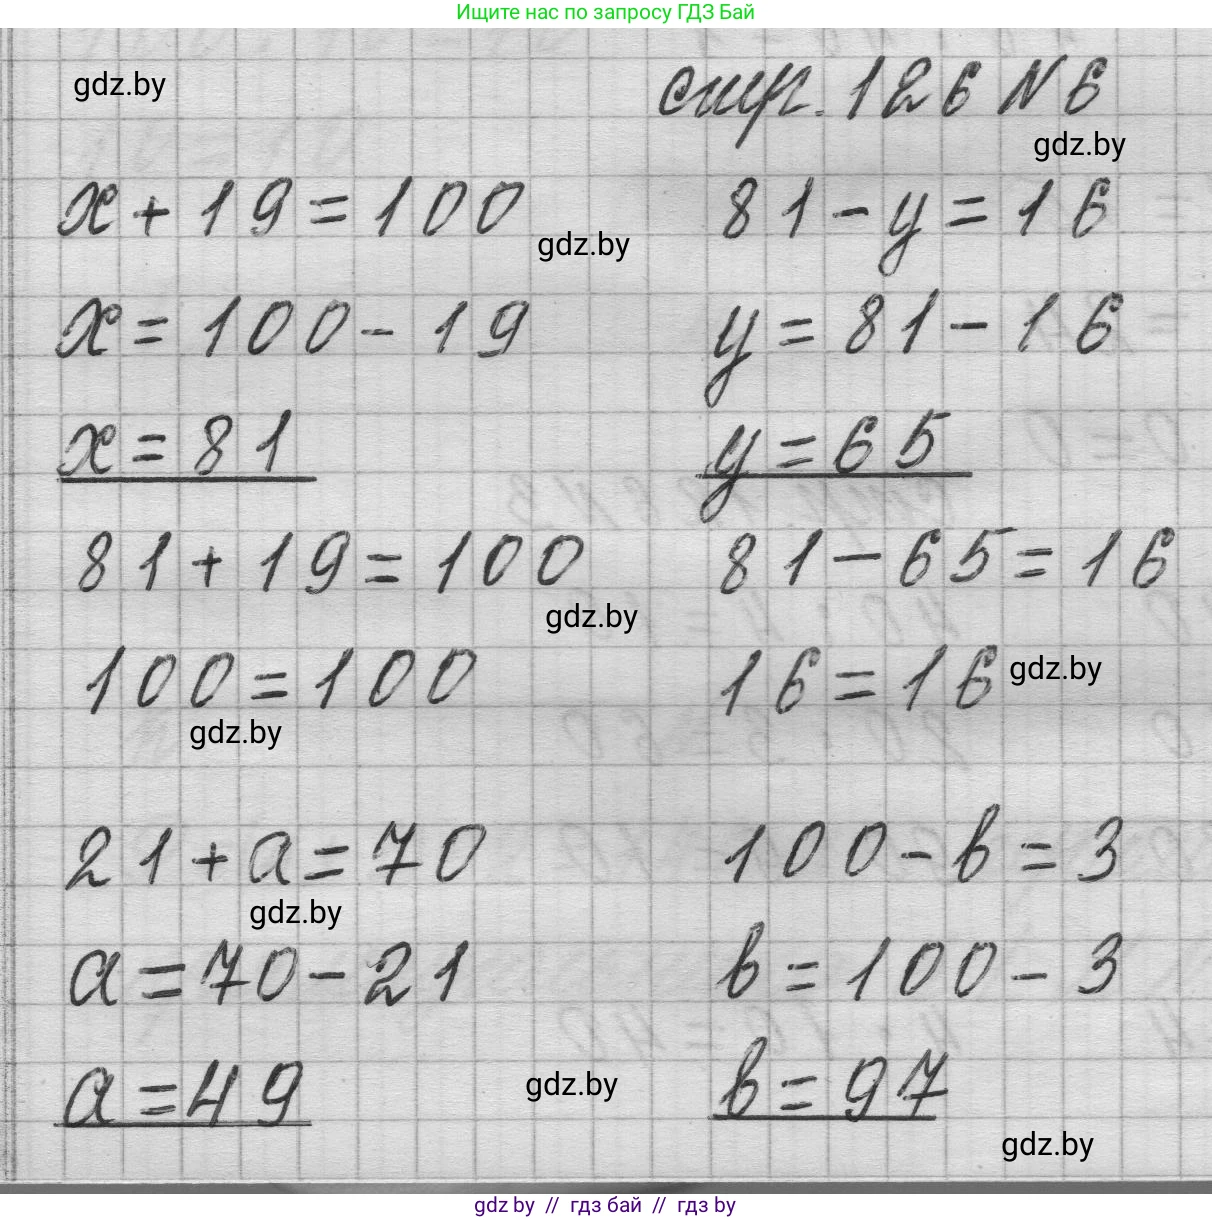 Ищите нас по запросу ГДЗ Бай
gdz.by
стр. 126 N 6
gdz.by
x + 19 = 100
81 - y = 16
gdz.by
x = 100 - 19
y = 81 - 16
x = 81
y = 65
81 + 19 = 100
81 - 65 = 16
gdz.by
100 = 100
16 = 16
gdz.by
gdz.by
21 + a = 70
100 - в = 3
gdz.by
a = 70 - 21
в = 100 - 3
a = 49
в = 97
gdz.by
gdz.by
gdz by // гдз бай // гдз by